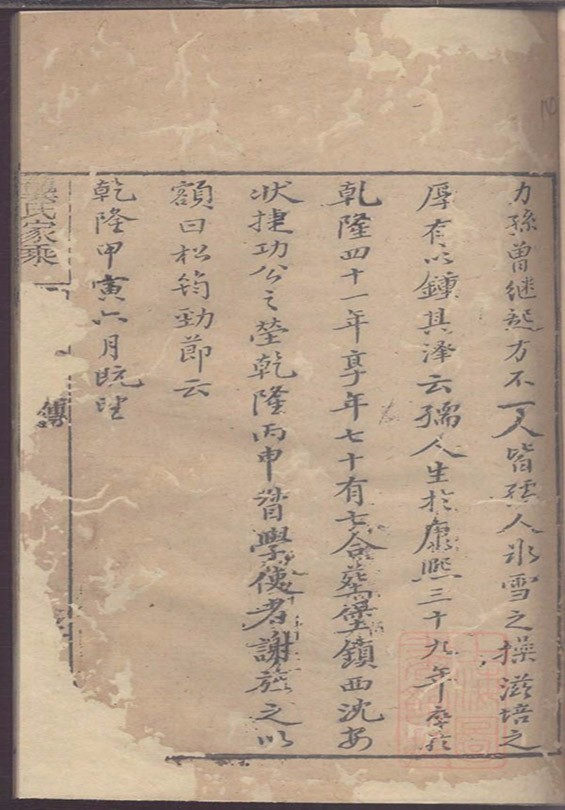 力孫曾继起方不一人皆孺人氷雪之操滋培之
厚有以鍾其澤云孺人生扵康熙三十九年卒扵
乾隆四十一年享年七十有七合葬望鎮西沈安
状捷功公之塋乾隆丙申督學使者謝旌之以
額曰松筠勁節云
乾隆甲寅六月既望
龔氏家乘
傳